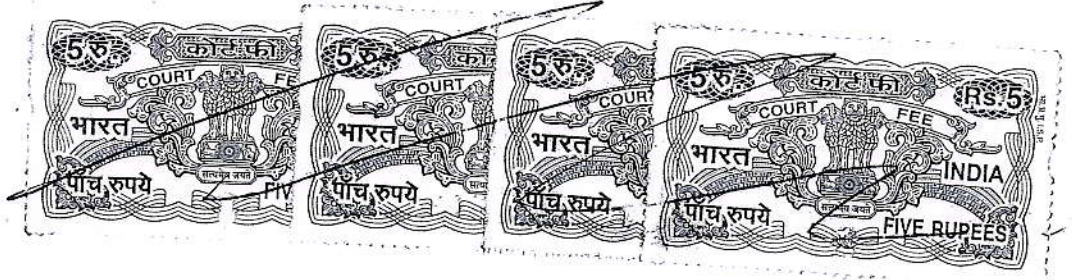 5 रु.
कोर्ट फी
COURT FE
भारत
सत्यमेव जयते
पाँच रुपये
FIV
5 रु.
COURT
भारत
पाँच रुपये
5 रु.
COUR
भारत
पाँच रुपये
5 रु.
कोर्ट फी
Rs. 5
COURT FEE
भारत
INDIA
सत्यमेव जयते
पाँच रुपये
FIVE RUPEES